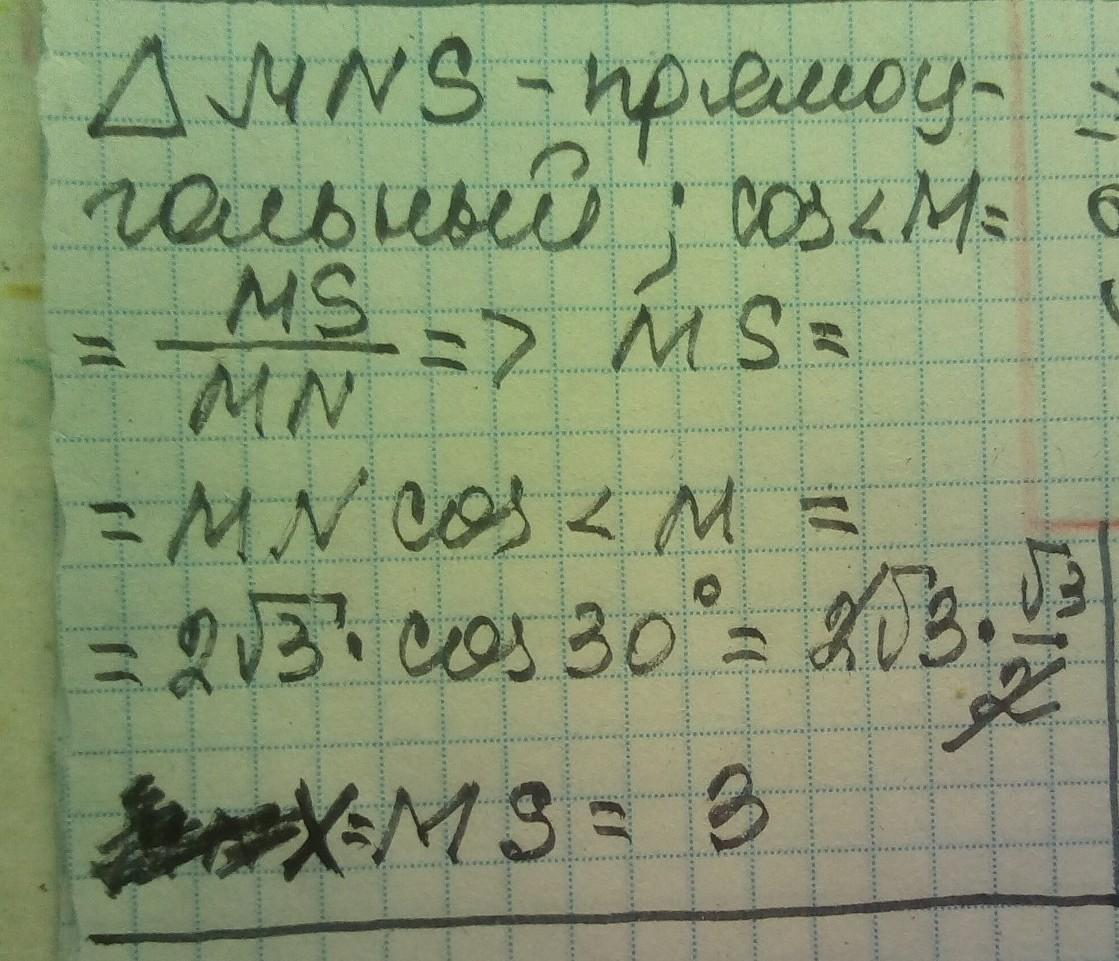 △ MNS - прямоу-
гольный ; cos < M =
= MS/MN => MS =
= MN cos < M =
= 2√3 · cos 30° = 2√3 · √3/2
X = MS = 3